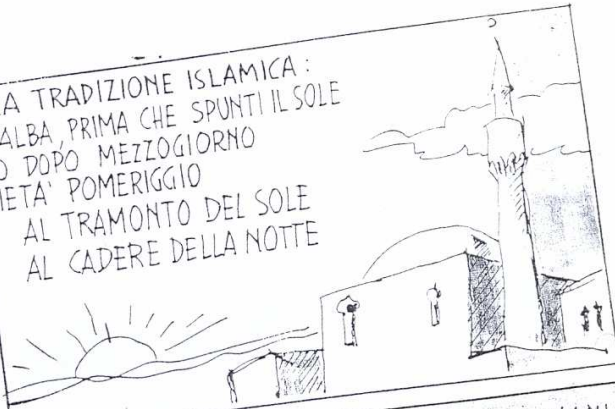 A TRADIZIONE ISLAMICA:
ALBA, PRIMA CHE SPUNTI IL SOLE
O DOPO MEZZOGIORNO
IETA' POMERIGGIO
AL TRAMONTO DEL SOLE
AL CADERE DELLA NOTTE